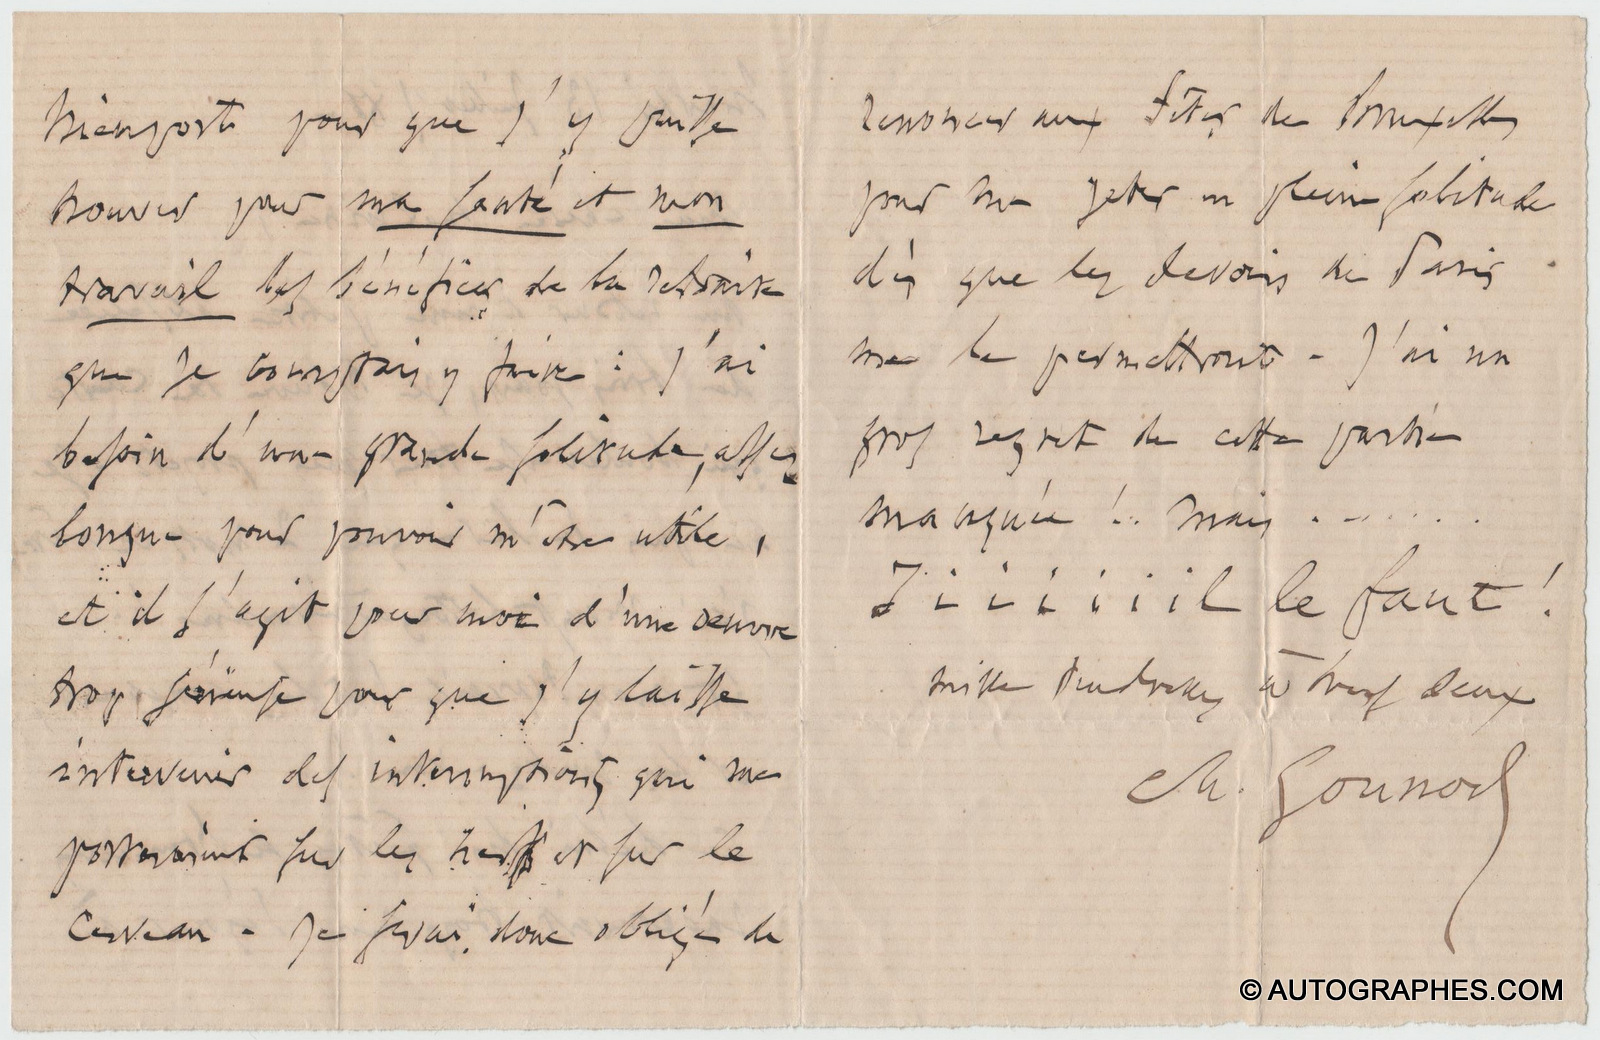 Nieuport pour que j'y puisse
trouver pour ma santé et mon
travail les bénéfices de la retraite
que je comptais y faire : j'ai
besoin d'une grande solitude, assez
longue pour pouvoir m'être utile,
et il s'agit pour moi d'une œuvre
trop sérieuse pour que j'y laisse
intervenir des interruptions qui me
porteraient sur les nerfs et sur le
cerveau - Je serai donc obligé de
renoncer aux fêtes de Bruxelles
pour me jeter en pleine solitude
dès que les devoirs de Paris
me le permettront - J'ai un
gros regret de cette partie
manquée !.. mais . - . . . .
Iiiiiiil le faut !
mille tendresses à tous deux
Ch. Gounod
© AUTOGRAPHES.COM